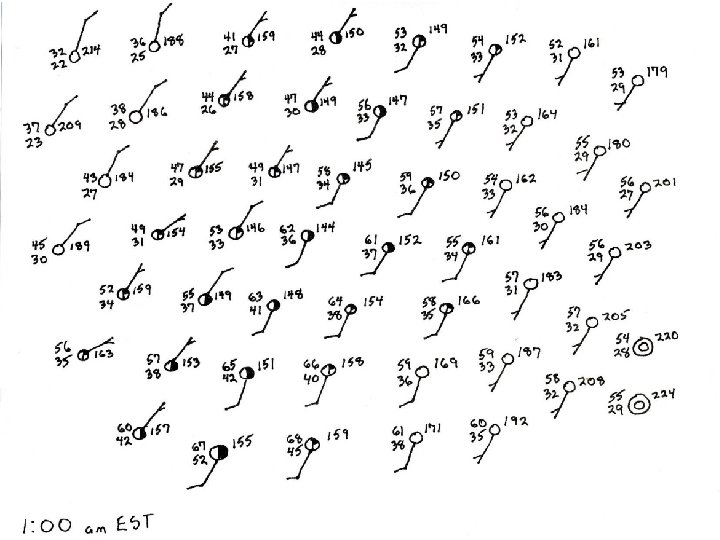 32 214
22
36 188
25
41 159
27
44 150
28
53 149
32
54 152
33
52 161
31
53 179
29
37 209
23
38 186
28
44 158
26
47 149
30
56 147
33
57 151
35
53 164
32
55 180
29
43 184
27
47 155
29
49 147
31
58 145
34
59 150
36
54 162
33
56 201
27
45 189
30
49 154
31
53 146
33
62 144
36
61 152
37
55 161
34
56 184
30
56 203
29
52 159
34
55 149
37
63 148
41
64 154
38
58 166
35
57 183
31
57 205
32
54 220
28
56 163
35
57 153
38
65 151
42
66 158
40
59 169
36
59 187
33
58 208
32
55 224
29
60 157
42
67 155
52
68 159
45
61 171
38
60 192
35
1:00 am EST